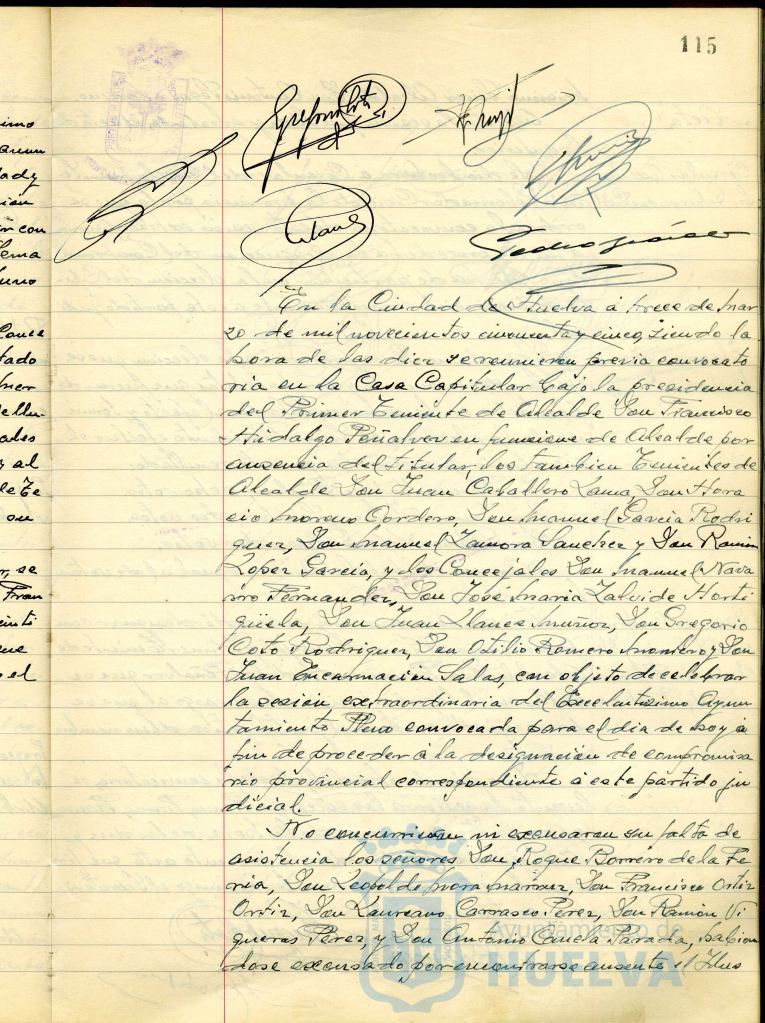 115
En la Ciudad de Huelva á trece de mar
zo de mil novecientos cincuenta y cinco, siendo la
hora de las diez se reunieron previa convocato
ria en la Casa Capitular bajo la presidencia
del Primer Teniente de Alcalde Don Francisco
Hidalgo Peñalver en funcione de Alcalde por
ausencia del titular, los tambien Tenientes de
Alcalde Don Juan Caballero Lama, Don Hora
cio Moreno Cordero, Don Manuel Garcia Rodri
guez, Don Manuel Zamora Sanchez y Don Ramón
Lopez Garcia, y los Concejales Don Manuel Nava
rro Fernandez, Don José Maria Zalvide Horti
güela, Don Juan Llanes Muñoz, Don Gregorio
Coto Rodriguez, Don Otilio Romero Montero y Don
Juan Encarnación Salas, con objeto de celebrar
la sesión extraordinaria del Excelentisimo Ayun
tamiento Pleno convocada para el dia de hoy á
fin de proceder á la designación de compromisa
rio provincial correspondiente á este partido ju
dicial.
No concurrieron ni excusaron su falta de
asistencia los señores Don Roque Borrero de la Fe
ria, Don Leopoldo Mora Don Francisco Ortiz
Ortiz, Don Laureano Carrasco Perez, Don Ramón Vi
gueras Pérez y Don Antonio Canela Parada, habien
dose excusado por encontrarse ausente el Ilus
Ayuntamiento de
HUELVA